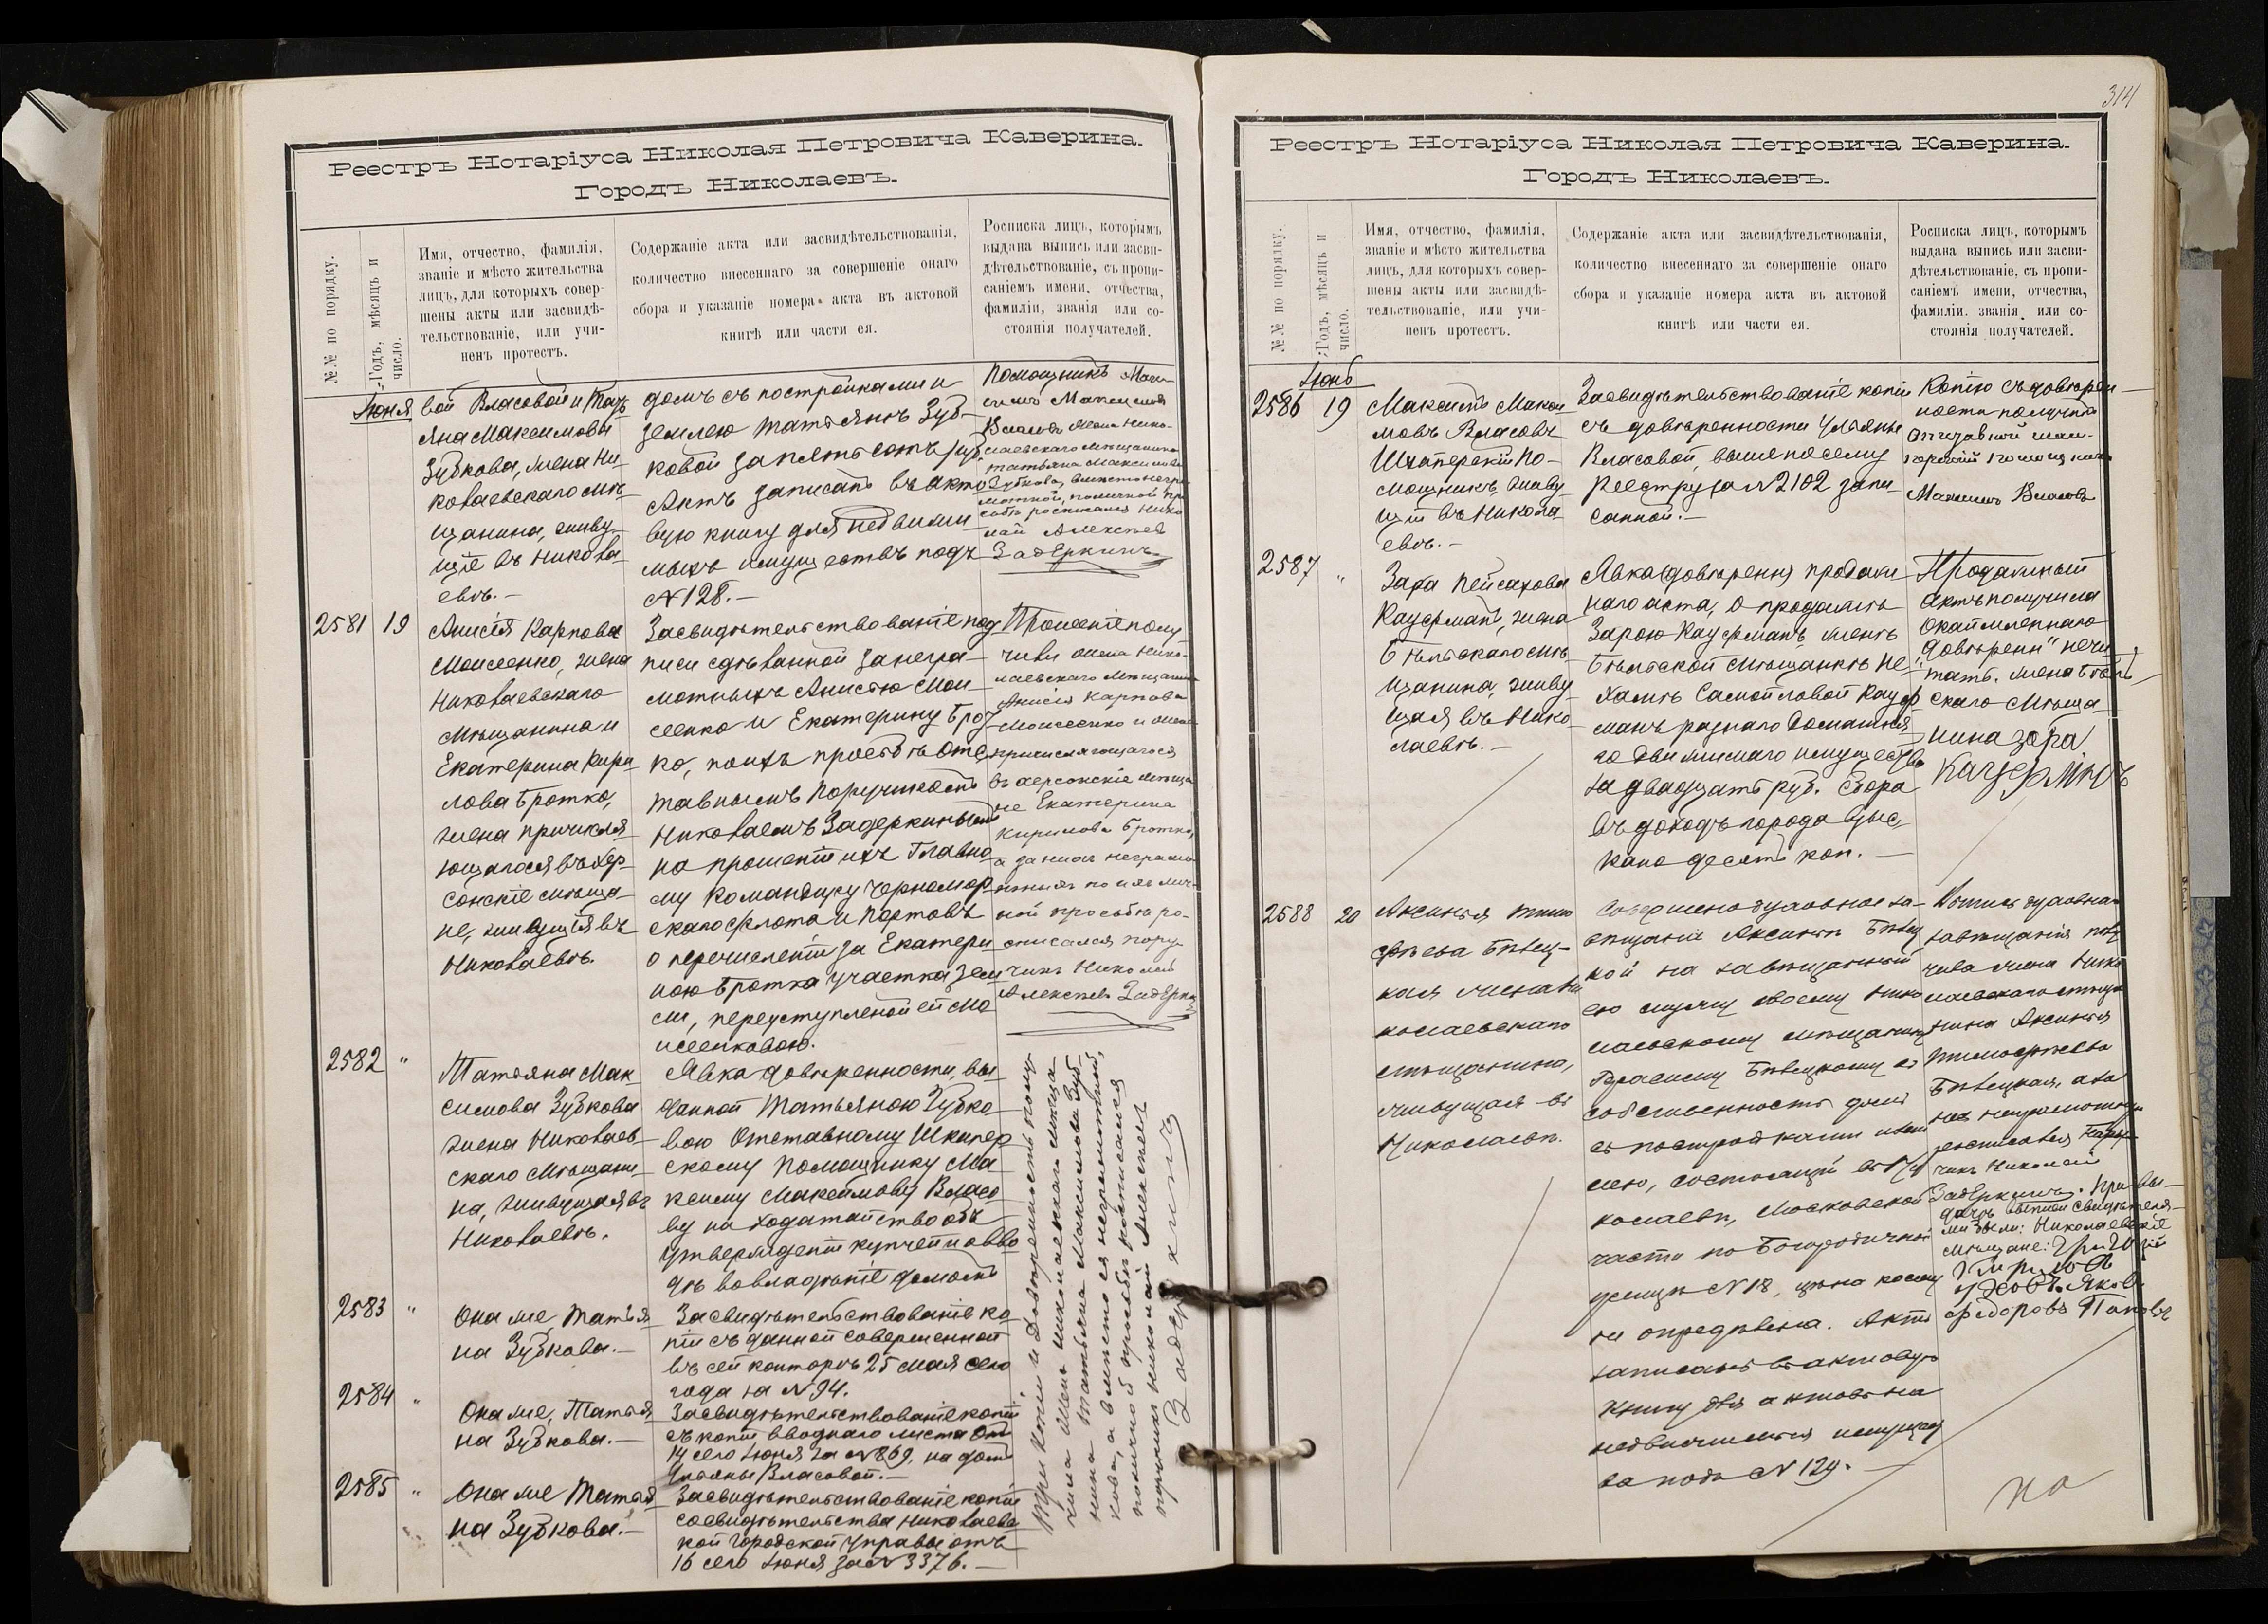 Реестръ Нотаріуса Николая Петровича Каверина.
Городъ Николаевъ.
№№ по порядку.
Годъ, мѣсяцъ и
число.
Имя, отчество, фамилія,
званіе и мѣсто жительства
лицъ, для которыхъ совер-
шены акты или засвидѣ-
тельствованіе, или учи-
ненъ протестъ.
Содержаніе акта или засвидѣтельствованія,
количество внесеннаго за совершеніе онаго
сбора и указаніе номера акта въ актовой
книгѣ или части ея.
Росписка лицъ, которымъ
выдана выпись или засви-
дѣтельствованіе, съ пропи-
саніемъ имени, отчества,
фамиліи, званія или со-
стоянія получателей.
Іюня
вой Власовой и Тать
яна Максимова
Зубкова, жена Ни-
колаевскаго мѣ-
щанина, живу-
щіе въ Никола-
евѣ.-
домъ съ постройками и
землею Татьянѣ Зуб-
ковой за пятьсотъ руб.
Актъ записанъ въ акто
вую книгу для недвижи
мыхъ имуществъ подъ
№ 128.-
Помощникъ Мак-
симъ Максимовъ
Власовъ жена Нико-
лаевскаго мѣщанина
Татьяна Максимова
Зубкова, вмѣсто негра-
мотной, по личной про
сьбѣ росписался Нико
лай Алексѣевъ
Задеркинъ
2581 19
Анисія Карпова
Моисеенко, жена
Николаевскаго
мѣщанина и
Екатерина Кири
лова Бротко,
жена причисля-
ющагося въ Хер-
сонскіе мѣща-
не, живущія въ
Николаевѣ.
Засвидѣтельствованіе под
писи сдѣланной за негра-
мотныхъ Анисію Мои-
сеенко и Екатерину Брот
ко, по ихъ просьбѣ Отс
тавнымъ Поручикомъ
Николаемъ Задеркинымъ
на прошеніи ихъ Главно
му Командиру Черномор
скаго флота и портовъ
о перечисленіи за Екатери
ною Бротко участка зем
ли, переуступленной ей Мо
исеенковою.
Прошеніе полу-
чили жена Нико-
лаевскаго мѣщанина
Анисія Карпова
Моисеенко и жена
причисляющагося
въ херсонскіе мѣща
не Екатерина
Кирилова Бротко,
а за нихъ неграмо
тныхъ по ихъ лич-
ной просьбѣ ро-
списался пору-
чикъ Николай
Алексѣевъ Задеркин
2582 "
Татьяна Мак-
симова Зубкова
жена Николаев-
скаго мѣщани-
на, живущая въ
Николаевѣ.
Явка довѣренности, вы-
данной Татьяною Зубко
вою Отставному Шкипер
скому Помощнику Ма-
ксиму Максимову Власо
ву на ходатайство объ
утвержденіи купчей и вво
дѣ во владѣніе домомъ
2583 "
Она же, Татья-
на Зубкова.-
Засвидѣтельствованіе ко-
піи съ данной совершенной
въ сей конторѣ 25 мая сего
года за № 94.
2584 "
Она же, Татья-
на Зубкова.-
Засвидѣтельствованіе копіи
съ копіи вводнаго листа отъ
14 сего Іюня за № 869, на домъ
Ульяны Власовой.-
2585 "
Она же Татья-
на Зубкова.-
Засвидѣтельствованіе копіи
свидѣтельства Николаевс
кой Городской Управы отъ
16 сего Іюня за № 3376.-
Три копіи и довѣренность полу-
чила жена николаевскаго мѣща-
нина Татьяна Максимова Зуб-
кова, а вмѣсто ея неграмотной,
по личной просьбѣ росписался
поручикъ Николай Алексѣевъ
Задеркинъ
314
Реестръ Нотаріуса Николая Петровича Каверина.
Городъ Николаевъ.
№№ по порядку.
Годъ, мѣсяцъ и
число.
Имя, отчество, фамилія,
званіе и мѣсто жительства
лицъ, для которыхъ совер-
шены акты или засвидѣ-
тельствованіе, или учи-
ненъ протестъ.
Содержаніе акта или засвидѣтельствованія,
количество внесеннаго за совершеніе онаго
сбора и указаніе номера акта въ актовой
книгѣ или части ея.
Росписка лицъ, которымъ
выдана выпись или засви-
дѣтельствованіе, съ пропи-
саніемъ имени, отчества,
фамиліи, званія или со-
стоянія получателей.
2586 19
Максимъ Макси
мовъ Власовъ
Шкиперскій По-
мощникъ, живу-
щій въ Никола-
евѣ.-
Засвидѣтельствованіе копіи
съ довѣренности Ульяны
Власовой, выше по сему
реестру за № 2102 запи
санной.-
Копію съ довѣрен-
ности получилъ
Отставной шки-
перскій помощникъ
Максимъ Власовъ
2587 "
Зара Пейсахова
Кауфманъ, жена
Бѣльскаго мѣ-
щанина, живу-
щая въ Нико-
лаевѣ.-
Явка продаж-
наго акта, о продажѣ
Зарою Кауфманъ женѣ
Бѣльской мѣщанкѣ Не-
хамѣ Самойловой Кауф
манъ разнаго домашня
го движимаго имущества
за двадцать руб. Сбора
въ доходъ города взыс-
кано десять коп.-
Продажный
актъ получила
нечи-
тать. жена Бѣль
скаго мѣща
нина Зара
Кауфманъ
2588 20
Аксинья Тимо
фѣева Бѣлец-
кая жена Ни
колаевскаго
мѣщанина,
живущая въ
Николаевѣ.
Совершено духовное за-
вѣщаніе Аксиньи Бѣлец
кой на завѣщанный
ею мужу своему Нико
лаевскому мѣщанину
Герасиму Бѣлецкому въ
собственность домъ
съ постройками и зем
лею, состоящій въ Ни
колаевѣ, Московской
части по Богородичной
улицѣ № 18, цѣна коему
не опредѣлена. Актъ
записанъ въ актовую
книгу для актовъ на
недвижимыя имущест
ва подъ № 129.
Выпись духовнаго
завѣщанія полу
чила жена Нико
лаевскаго мѣща
нина Аксинья
Тимофѣева
Бѣлецкая, а за
нее неграмотную
росписался Пору-
чикъ Николай
Задеркинъ. При вы-
дачѣ выписи свидѣтеля-
ми были: Николаевскіе
мѣщане: Григорій
Яков
Федоровъ Поповъ